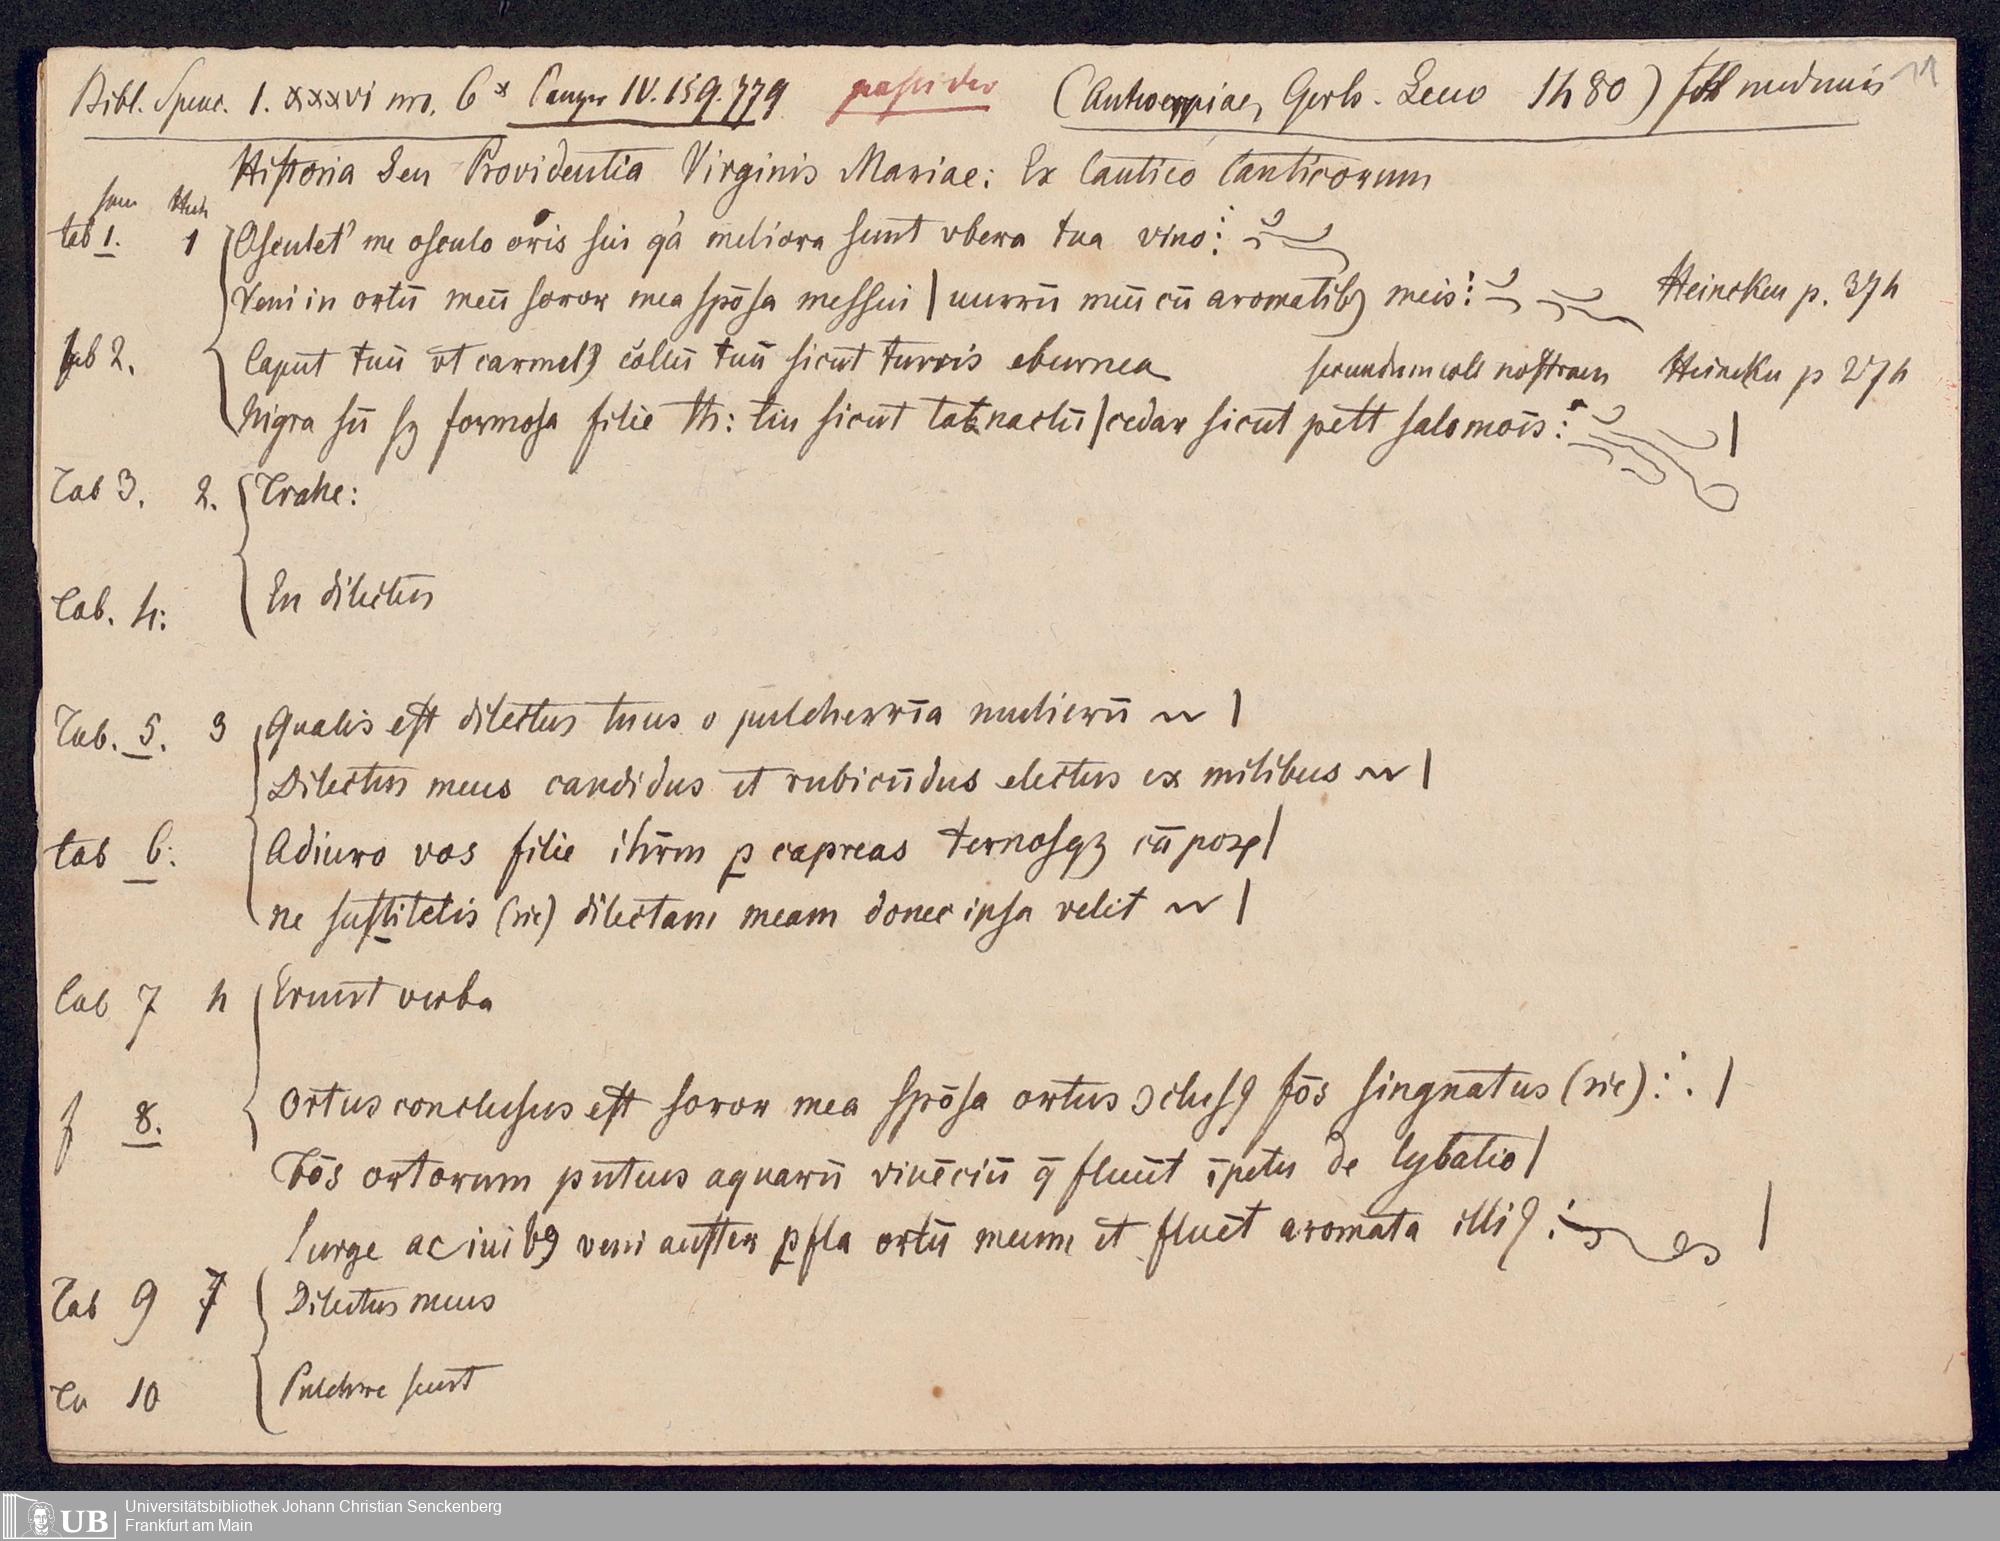 Bibl. Spenc. I. xxxvi nro. 6* Panzer IV. 159. 779 possideo (Antwerpiae, Gerh. Leeu 1480) fol. 11
Historia Seu Providentia Virginis Mariae: Ex Cantico Canticorum
tab 1. 1 Osculet' me osculo oris sui q'a meliora sunt vbera tua vino:
Veni in ortū meū soror mea spōsa messui | mirrū meū cū aromatibꝫ meis: Heineken p. 374
tab 2. Caput tuū vt carmelꝫ collū tuū sicut turris eburnea secundum coll nostram Heineken p 274
Nigra sū sꝫ formosa filie ih: tiu sicut tabnaclū | cedar sicut pell salomōis: |
Tab 3. 2. Trahe:
Tab. 4: En dilectus
Tab. 5. 3 Qualis est dilectus tuus o pulcherrīa mulierū ~ |
Dilectus meus candidus et rubicūdus electus ex milibus ~ |
tab 6: Adiuro vos filie ihrm̄ ꝑ capreas ceruosqꝫ cā poꝝ |
ne sustitetis (sic) dilectam meam donec ipsa velit ~ |
Tab 7 4 Ernust verba
f 8. Ortus conclusus est soror mea spōsa ortus ↄclusꝯ fōs singnatus (sic) : . |
Fōs ortorum puteus aquarū viuēciū q̄ fluūt īpetu de lybatio |
Surge ac iui bꝯ veni auster ꝑfla ortū meum et fluēt aromata illiꝯ : |
Tab 9 Dilectus meus
Ta 10 Pulchre sunt
Universitätsbibliothek Johann Christian Senckenberg
UB Frankfurt am Main